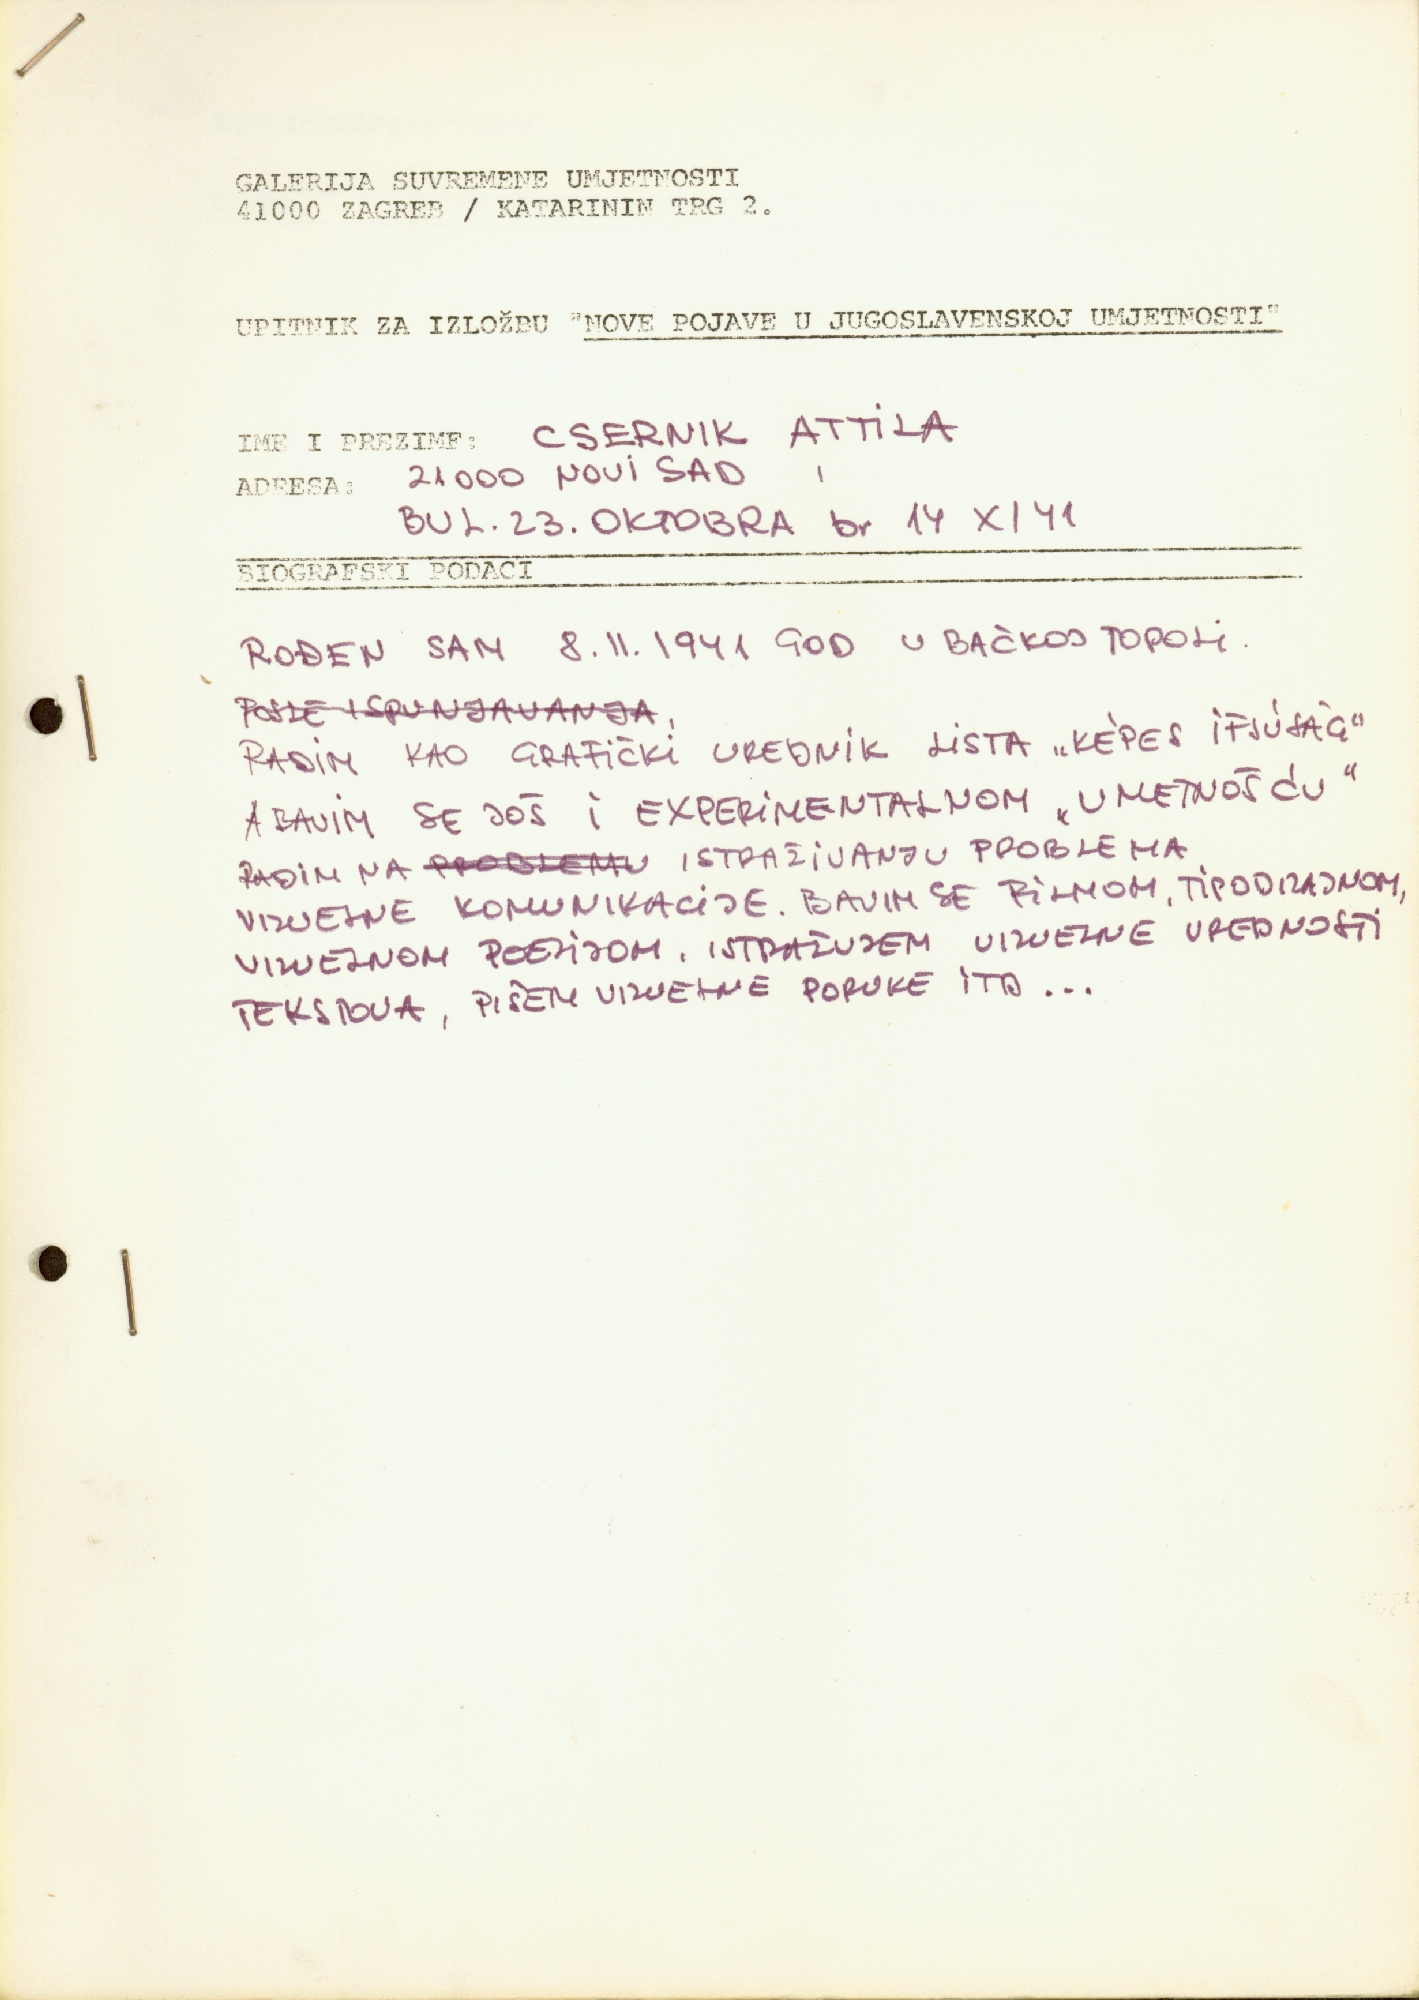 GALERIJA SUVREMENE UMJETNOSTI
41000 ZAGREB / KATARININ TRG 2.
UPITNIK ZA IZLOŽBU "NOVE POJAVE U JUGOSLAVENSKOJ UMJETNOSTI"
IME I PREZIME: CSERNIK ATTiLA
ADRESA: 21000 NOVi SAD
BUL. 23. OKTOBRA br 14 XI/41
BIOGRAFSKI PODACI
ROĐEN SAM 8.II.1941 GOD U BAČKOJ TOPOLi.
POSLE ISPUNJAVANJA,
RADiM KAO GRAFiČKi UREDNIK LiSTA „KÉPES iFJÚSÁG“
A BAViM SE JOŠ i EXPERiMENTALNOM „UMETNOŠĆU“
RADiM NA PROBLEMU ISTRAŽiVANJU PROBLEMA
VIZUELNE KOMUNIKACiJE. BAVIM SE FiLMOM, TiPODIZAJNOM,
VIZUELNOM POEZiJOM. ISTRAŽUJEM VIZUELNE VREDNOSTi
TEKSTOVA, PIŠEM VIZUELNE PORUKE iTD ...